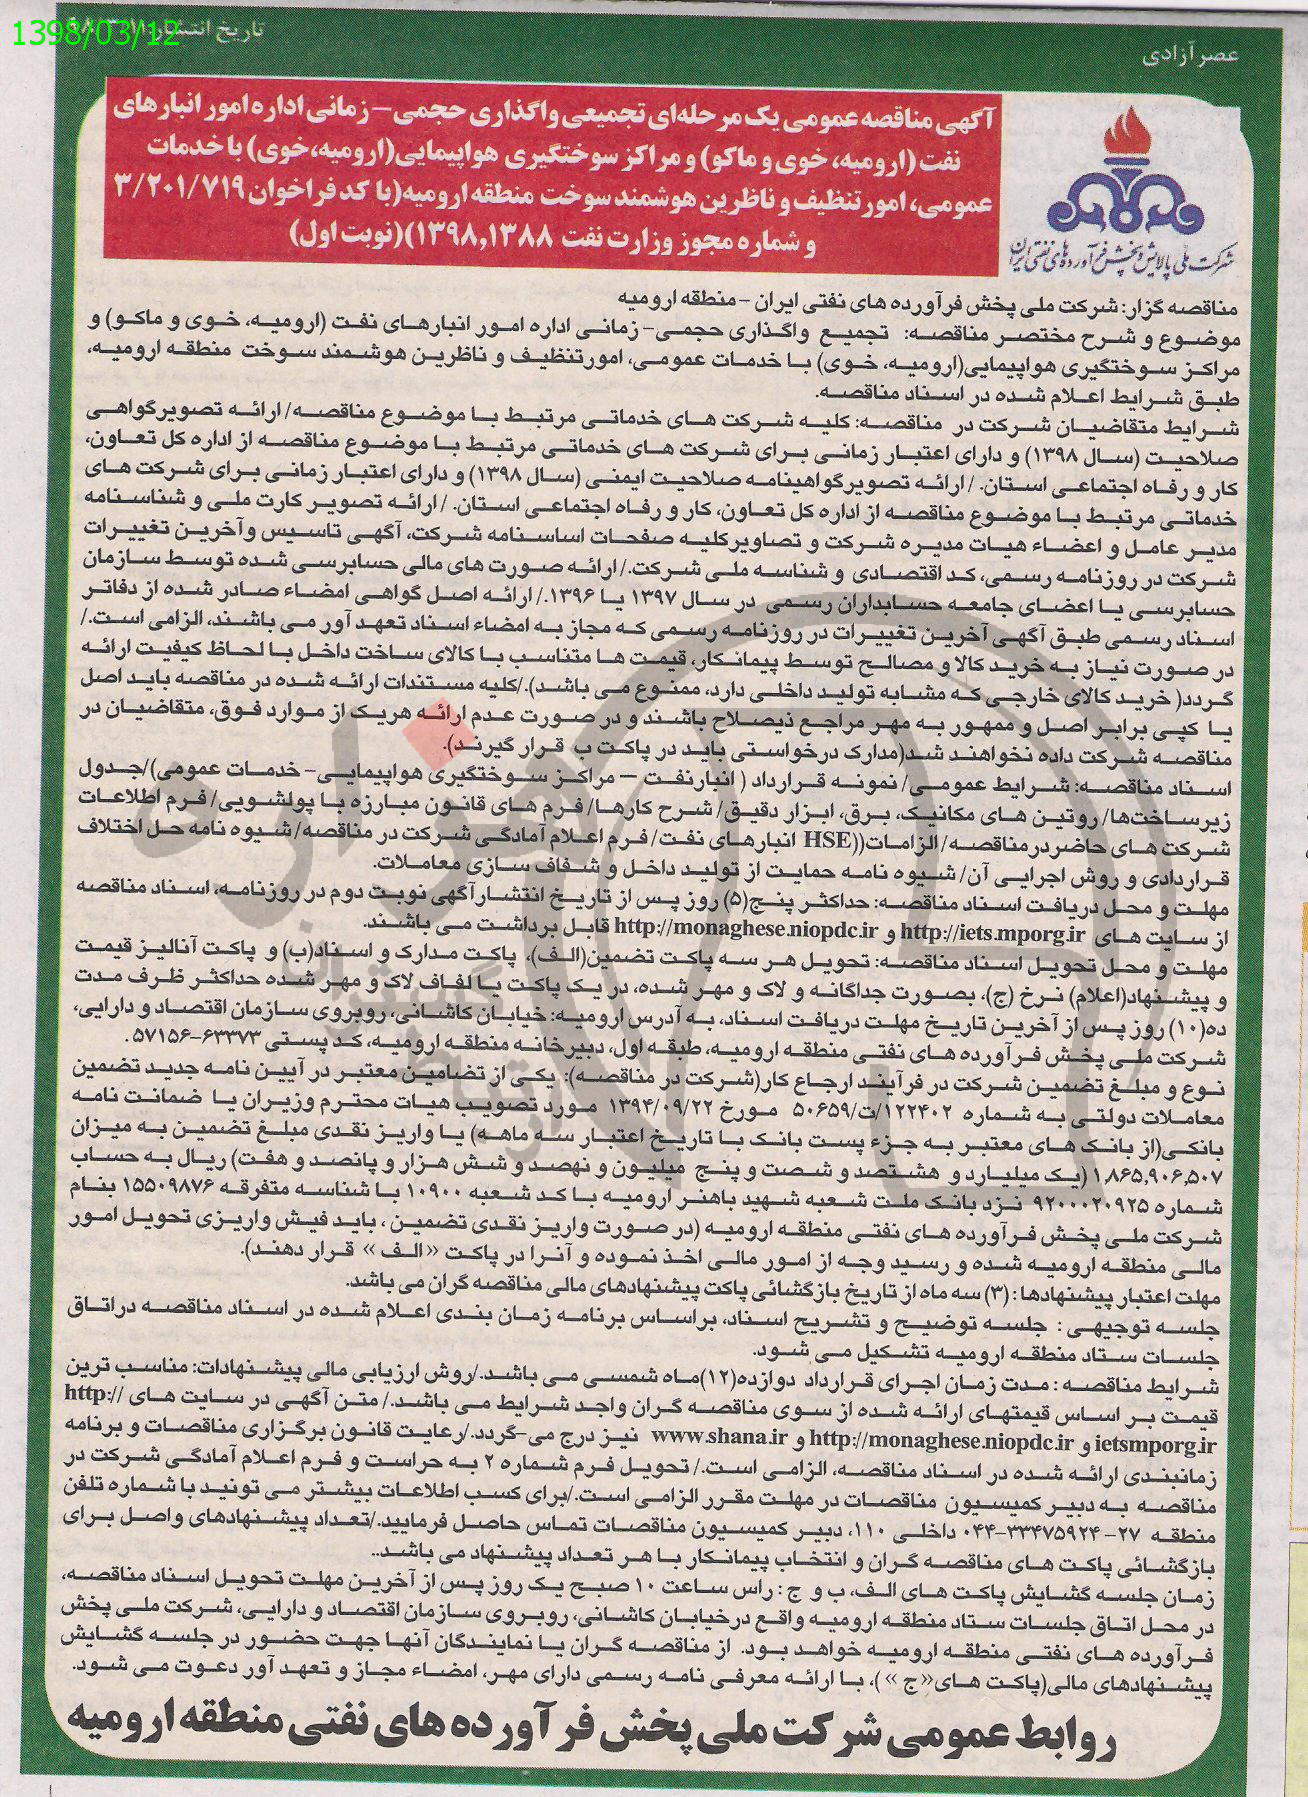 1398/03/12
تاریخ انتشار:
عصر آزادی
آگهی مناقصه عمومی یک مرحله‌ای تجمیعی واگذاری حجمی – زمانی اداره امور انبارهای
نفت (ارومیه، خوی و ماکو) و مراکز سوختگیری هواپیمایی(ارومیه،خوی) با خدمات
عمومی، امور تنظیف و ناظرین هوشمند سوخت منطقه ارومیه(با کد فراخوان ۳/۲۰۱/۷۱۹
و شماره مجوز وزارت نفت ۱۳۹۸,۱۳۸۸)(نوبت اول)
شرکت ملی پالایش و پخش فرآورده های نفتی ایران
مناقصه گزار: شرکت ملی پخش فرآورده های نفتی ایران - منطقه ارومیه
موضوع و شرح مختصر مناقصه: تجمیع واگذاری حجمی- زمانی اداره امور انبارهای نفت (ارومیه، خوی و ماکو) و
مراکز سوختگیری هواپیمایی(ارومیه، خوی) با خدمات عمومی، امورتنظیف و ناظرین هوشمند سوخت منطقه ارومیه،
طبق شرایط اعلام شده در اسناد مناقصه.
شرایط متقاضیان شرکت در مناقصه: کلیه شرکت های خدماتی مرتبط با موضوع مناقصه/ ارائه تصویرگواهی
صلاحیت (سال ۱۳۹۸) و دارای اعتبار زمانی برای شرکت های خدماتی مرتبط با موضوع مناقصه از اداره کل تعاون،
کار و رفاه اجتماعی استان. / ارائه تصویرگواهینامه صلاحیت ایمنی (سال ۱۳۹۸) و دارای اعتبار زمانی برای شرکت های
خدماتی مرتبط با موضوع مناقصه از اداره کل تعاون، کار و رفاه اجتماعی استان. / ارائه تصویر کارت ملی و شناسنامه
مدیر عامل و اعضاء هیات مدیره شرکت و تصاویرکلیه صفحات اساسنامه شرکت، آگهی تاسیس وآخرین تغییرات
شرکت در روزنامه رسمی، کد اقتصادی و شناسه ملی شرکت./ ارائه صورت های مالی حسابرسی شده توسط سازمان
حسابرسی یا اعضای جامعه حسابداران رسمی در سال ۱۳۹۷ یا ۱۳۹۶./ ارائه اصل گواهی امضاء صادر شده از دفاتر
اسناد رسمی طبق آگهی آخرین تغییرات در روزنامه رسمی که مجاز به امضاء اسناد تعهد آور می باشند، الزامی است./
در صورت نیاز به خرید کالا و مصالح توسط پیمانکار، قیمت ها متناسب با کالای ساخت داخل با لحاظ کیفیت ارائه
گردد( خرید کالای خارجی که مشابه تولید داخلی دارد، ممنوع می باشد)./کلیه مستندات ارائه شده در مناقصه باید اصل
یا کپی برابر اصل و ممهور به مهر مراجع ذیصلاح باشند و در صورت عدم ارائه هریک از موارد فوق، متقاضیان در
مناقصه شرکت داده نخواهند شد(مدارک درخواستی باید در پاکت ب قرار گیرند).
اسناد مناقصه: شرایط عمومی/ نمونه قرارداد ( انبارنفت – مراکز سوختگیری هواپیمایی- خدمات عمومی)/جدول
زیرساخت‌ها/ روتین های مکانیک، برق، ابزار دقیق/ شرح کارها/ فرم های قانون مبارزه با پولشویی/ فرم اطلاعات
شرکت های حاضردرمناقصه/ الزامات((HSE انبارهای نفت/ فرم اعلام آمادگی شرکت در مناقصه/ شیوه نامه حل اختلاف
قراردادی و روش اجرایی آن/ شیوه نامه حمایت از تولید داخل و شفاف سازی معاملات.
مهلت و محل دریافت اسناد مناقصه: حداکثر پنج(۵) روز پس از تاریخ انتشارآگهی نوبت دوم در روزنامه، اسناد مناقصه
از سایت های http://iets.mporg.ir و http://monaghese.niopdc.ir قابل برداشت می باشند.
مهلت و محل تحویل اسناد مناقصه: تحویل هر سه پاکت تضمین(الف)، پاکت مدارک و اسناد(ب) و پاکت آنالیز قیمت
و پیشنهاد(اعلام) نرخ (ج)، بصورت جداگانه و لاک و مهر شده، در یک پاکت یا لفاف لاک و مهر شده حداکثر ظرف مدت
ده(۱۰) روز پس از آخرین تاریخ مهلت دریافت اسناد، به آدرس ارومیه: خیابان کاشانی، روبروی سازمان اقتصاد و دارایی،
شرکت ملی پخش فرآورده های نفتی منطقه ارومیه، طبقه اول، دبیرخانه منطقه ارومیه، کد پستی ۶۳۳۷۳-۵۷۱۵۶ .
نوع و مبلغ تضمین شرکت در فرآیند ارجاع کار(شرکت در مناقصه): یکی از تضامین معتبر در آیین نامه جدید تضمین
معاملات دولتی به شماره ۱۲۲۴۰۲/ت/۵۰۶۵۹ مورخ ۱۳۹۴/۰۹/۲۲ مورد تصویب هیات محترم وزیران یا ضمانت نامه
بانکی(از بانک های معتبر به جزء پست بانک با تاریخ اعتبار سه ماهه) یا واریز نقدی مبلغ تضمین به میزان
۱,۸۶۵,۹۰۶,۵۰۷ (یک میلیارد و هشتصد و شصت و پنج میلیون و نهصد و شش هزار و پانصد و هفت) ریال به حساب
شماره ۹۲۰۰۰۲۰۹۲۵ نزد بانک ملت شعبه شهید باهنر ارومیه با کد شعبه ۱۰۹۰۰ با شناسه متفرقه ۱۵۵۰۹۸۷۶ بنام
شرکت ملی پخش فرآورده های نفتی منطقه ارومیه (در صورت واریز نقدی تضمین ، باید فیش واریزی تحویل امور
مالی منطقه ارومیه شده و رسید وجه از امور مالی اخذ نموده و آنرا در پاکت «الف» قرار دهند).
مهلت اعتبار پیشنهادها : (۳) سه ماه از تاریخ بازگشائی پاکت پیشنهادهای مالی مناقصه گران می باشد.
جلسه توجیهی : جلسه توضیح و تشریح اسناد، براساس برنامه زمان بندی اعلام شده در اسناد مناقصه دراتاق
جلسات ستاد منطقه ارومیه تشکیل می شود.
شرایط مناقصه : مدت زمان اجرای قرارداد دوازده(۱۲)ماه شمسی می باشد./روش ارزیابی مالی پیشنهادات: مناسب ترین
قیمت بر اساس قیمتهای ارائه شده از سوی مناقصه گران واجد شرایط می باشد./ متن آگهی در سایت های http://
ietsmporg.ir و http://monaghese.niopdc.ir و www.shana.ir نیز درج می-گردد./رعایت قانون برگزاری مناقصات و برنامه
زمانبندی ارائه شده در اسناد مناقصه، الزامی است./ تحویل فرم شماره ۲ به حراست و فرم اعلام آمادگی شرکت در
مناقصه به دبیر کمیسیون مناقصات در مهلت مقرر الزامی است./برای کسب اطلاعات بیشتر می تونید با شماره تلفن
منطقه ۲۷- ۳۳۴۷۵۹۲۴-۰۴۴ داخلی ۱۱۰، دبیر کمیسیون مناقصات تماس حاصل فرمایید./تعداد پیشنهادهای واصل برای
بازگشائی پاکت های مناقصه گران و انتخاب پیمانکار با هر تعداد پیشنهاد می باشد..
زمان جلسه گشایش پاکت های الف، ب و ج : راس ساعت ۱۰ صبح یک روز پس از آخرین مهلت تحویل اسناد مناقصه،
در محل اتاق جلسات ستاد منطقه ارومیه واقع درخیابان کاشانی، روبروی سازمان اقتصاد و دارایی، شرکت ملی پخش
فرآورده های نفتی منطقه ارومیه خواهد بود. از مناقصه گران یا نمایندگان آنها جهت حضور در جلسه گشایش
پیشنهادهای مالی(پاکت های«ج »)، با ارائه معرفی نامه رسمی دارای مهر، امضاء مجاز و تعهد آور دعوت می شود.
روابط عمومی شرکت ملی پخش فرآورده های نفتی منطقه ارومیه